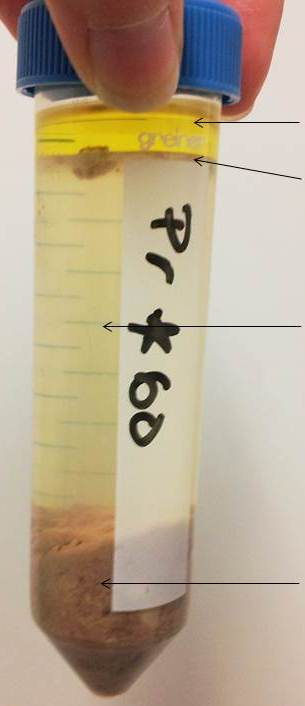 greiner
Pr * 60